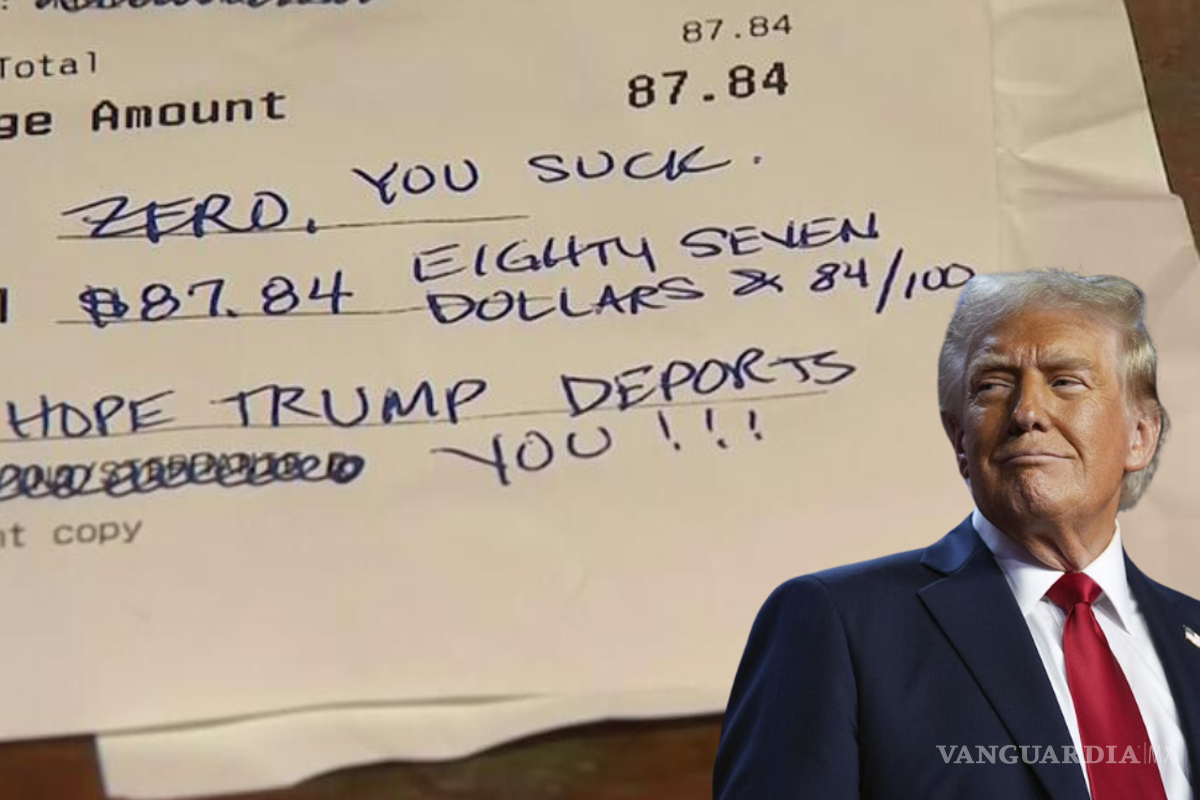 87.84
Total
ge Amount 87.84
ZERO. YOU SUCK.
$87.84 EIGHTY SEVEN
DOLLARS & 84/100
HOPE TRUMP DEPORTS
YOU!!!
nt copy
VANGUARDIA|MX